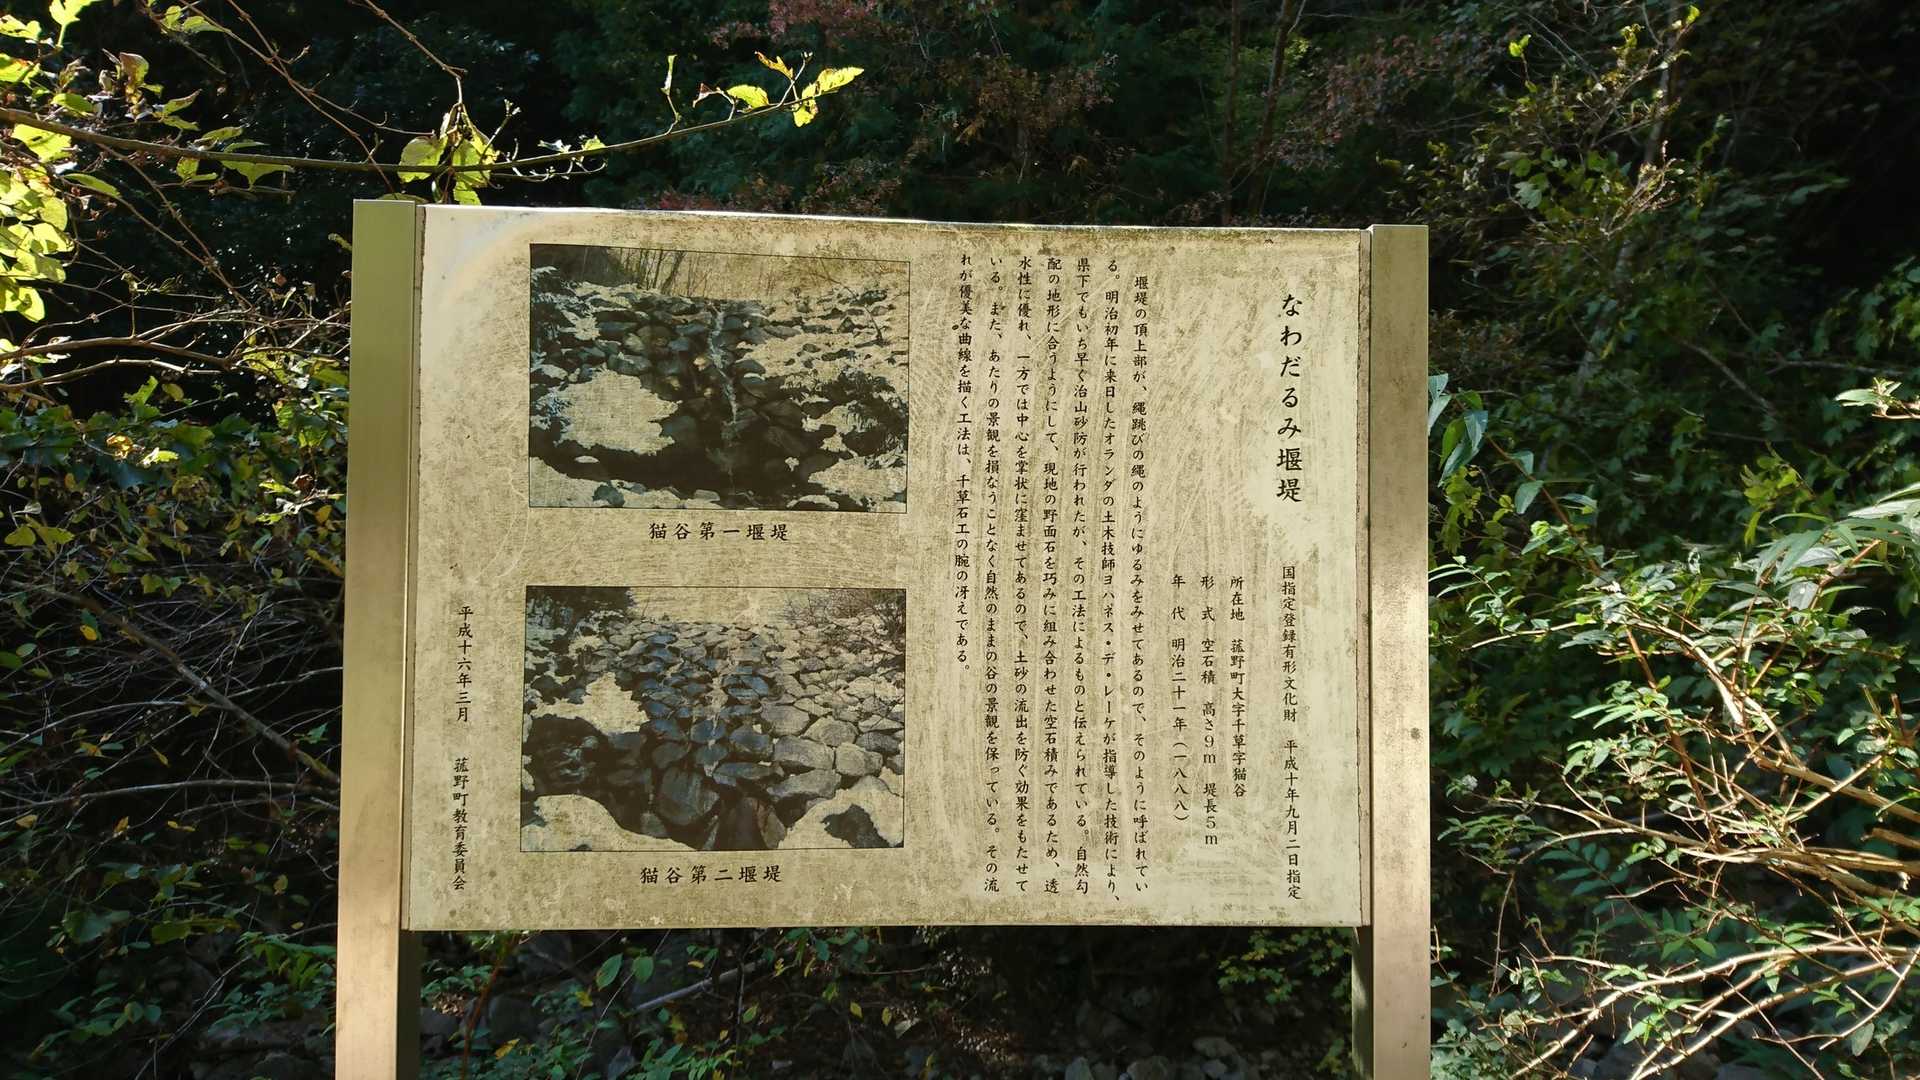 なわだるみ堰堤
国指定登録有形文化財　平成十年九月二日指定
所在地　菰野町大字千草字猫谷
形　式　空石積　高さ9m　堤長5m
年　代　明治二十一年（一八八八）
堰堤の頂上部が、縄跳びの縄のようにゆるみをみせてあるので、そのように呼ばれてい
る。明治初年に来日したオランダの土木技師ヨハネス・デ・レーケが指導した技術により、
県下でもいち早く治山砂防が行われたが、その工法によるものと伝えられている。自然勾
配の地形に合うようにして、現地の野面石を巧みに組み合わせた空石積みであるため、透
水性に優れ、一方では中心を掌状に窪ませてあるので、土砂の流出を防ぐ効果をもたせて
いる。また、あたりの景観を損なうことなく自然のままの谷の景観を保っている。その流
れが優美な曲線を描く工法は、千草石工の腕の冴えである。
猫谷第一堰堤
猫谷第二堰堤
平成十六年三月　菰野町教育委員会